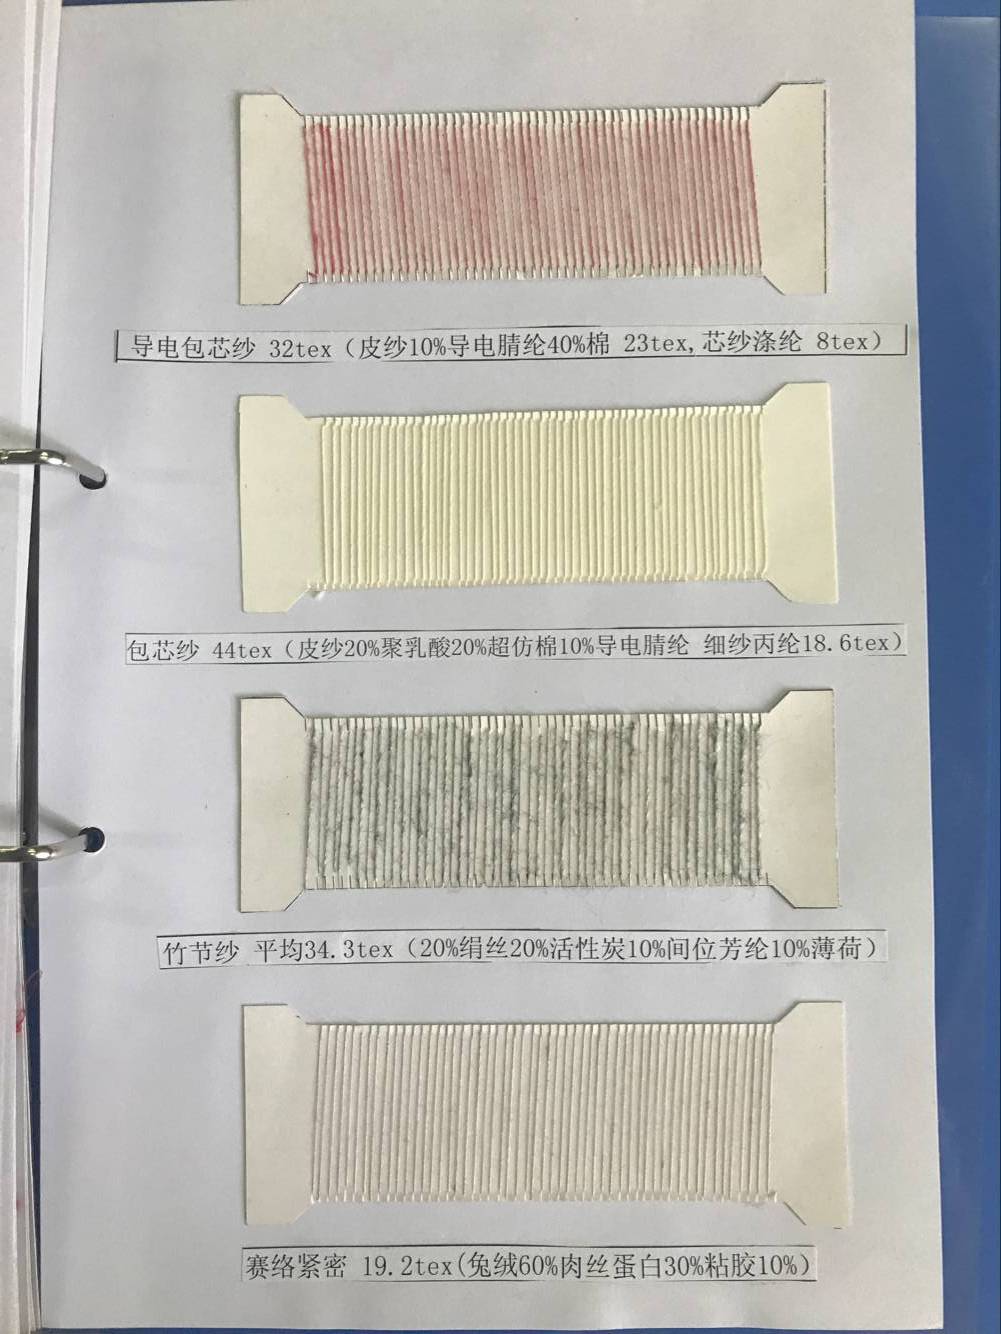 导电包芯纱 32tex（皮纱10%导电腈纶40%棉 23tex,芯纱涤纶 8tex）
包芯纱 44tex（皮纱20%聚乳酸20%超仿棉10%导电腈纶 细纱丙纶18.6tex）
竹节纱 平均34.3tex（20%绢丝20%活性炭10%间位芳纶10%薄荷）
赛络紧密 19.2tex(兔绒60%肉丝蛋白30%粘胶10%)